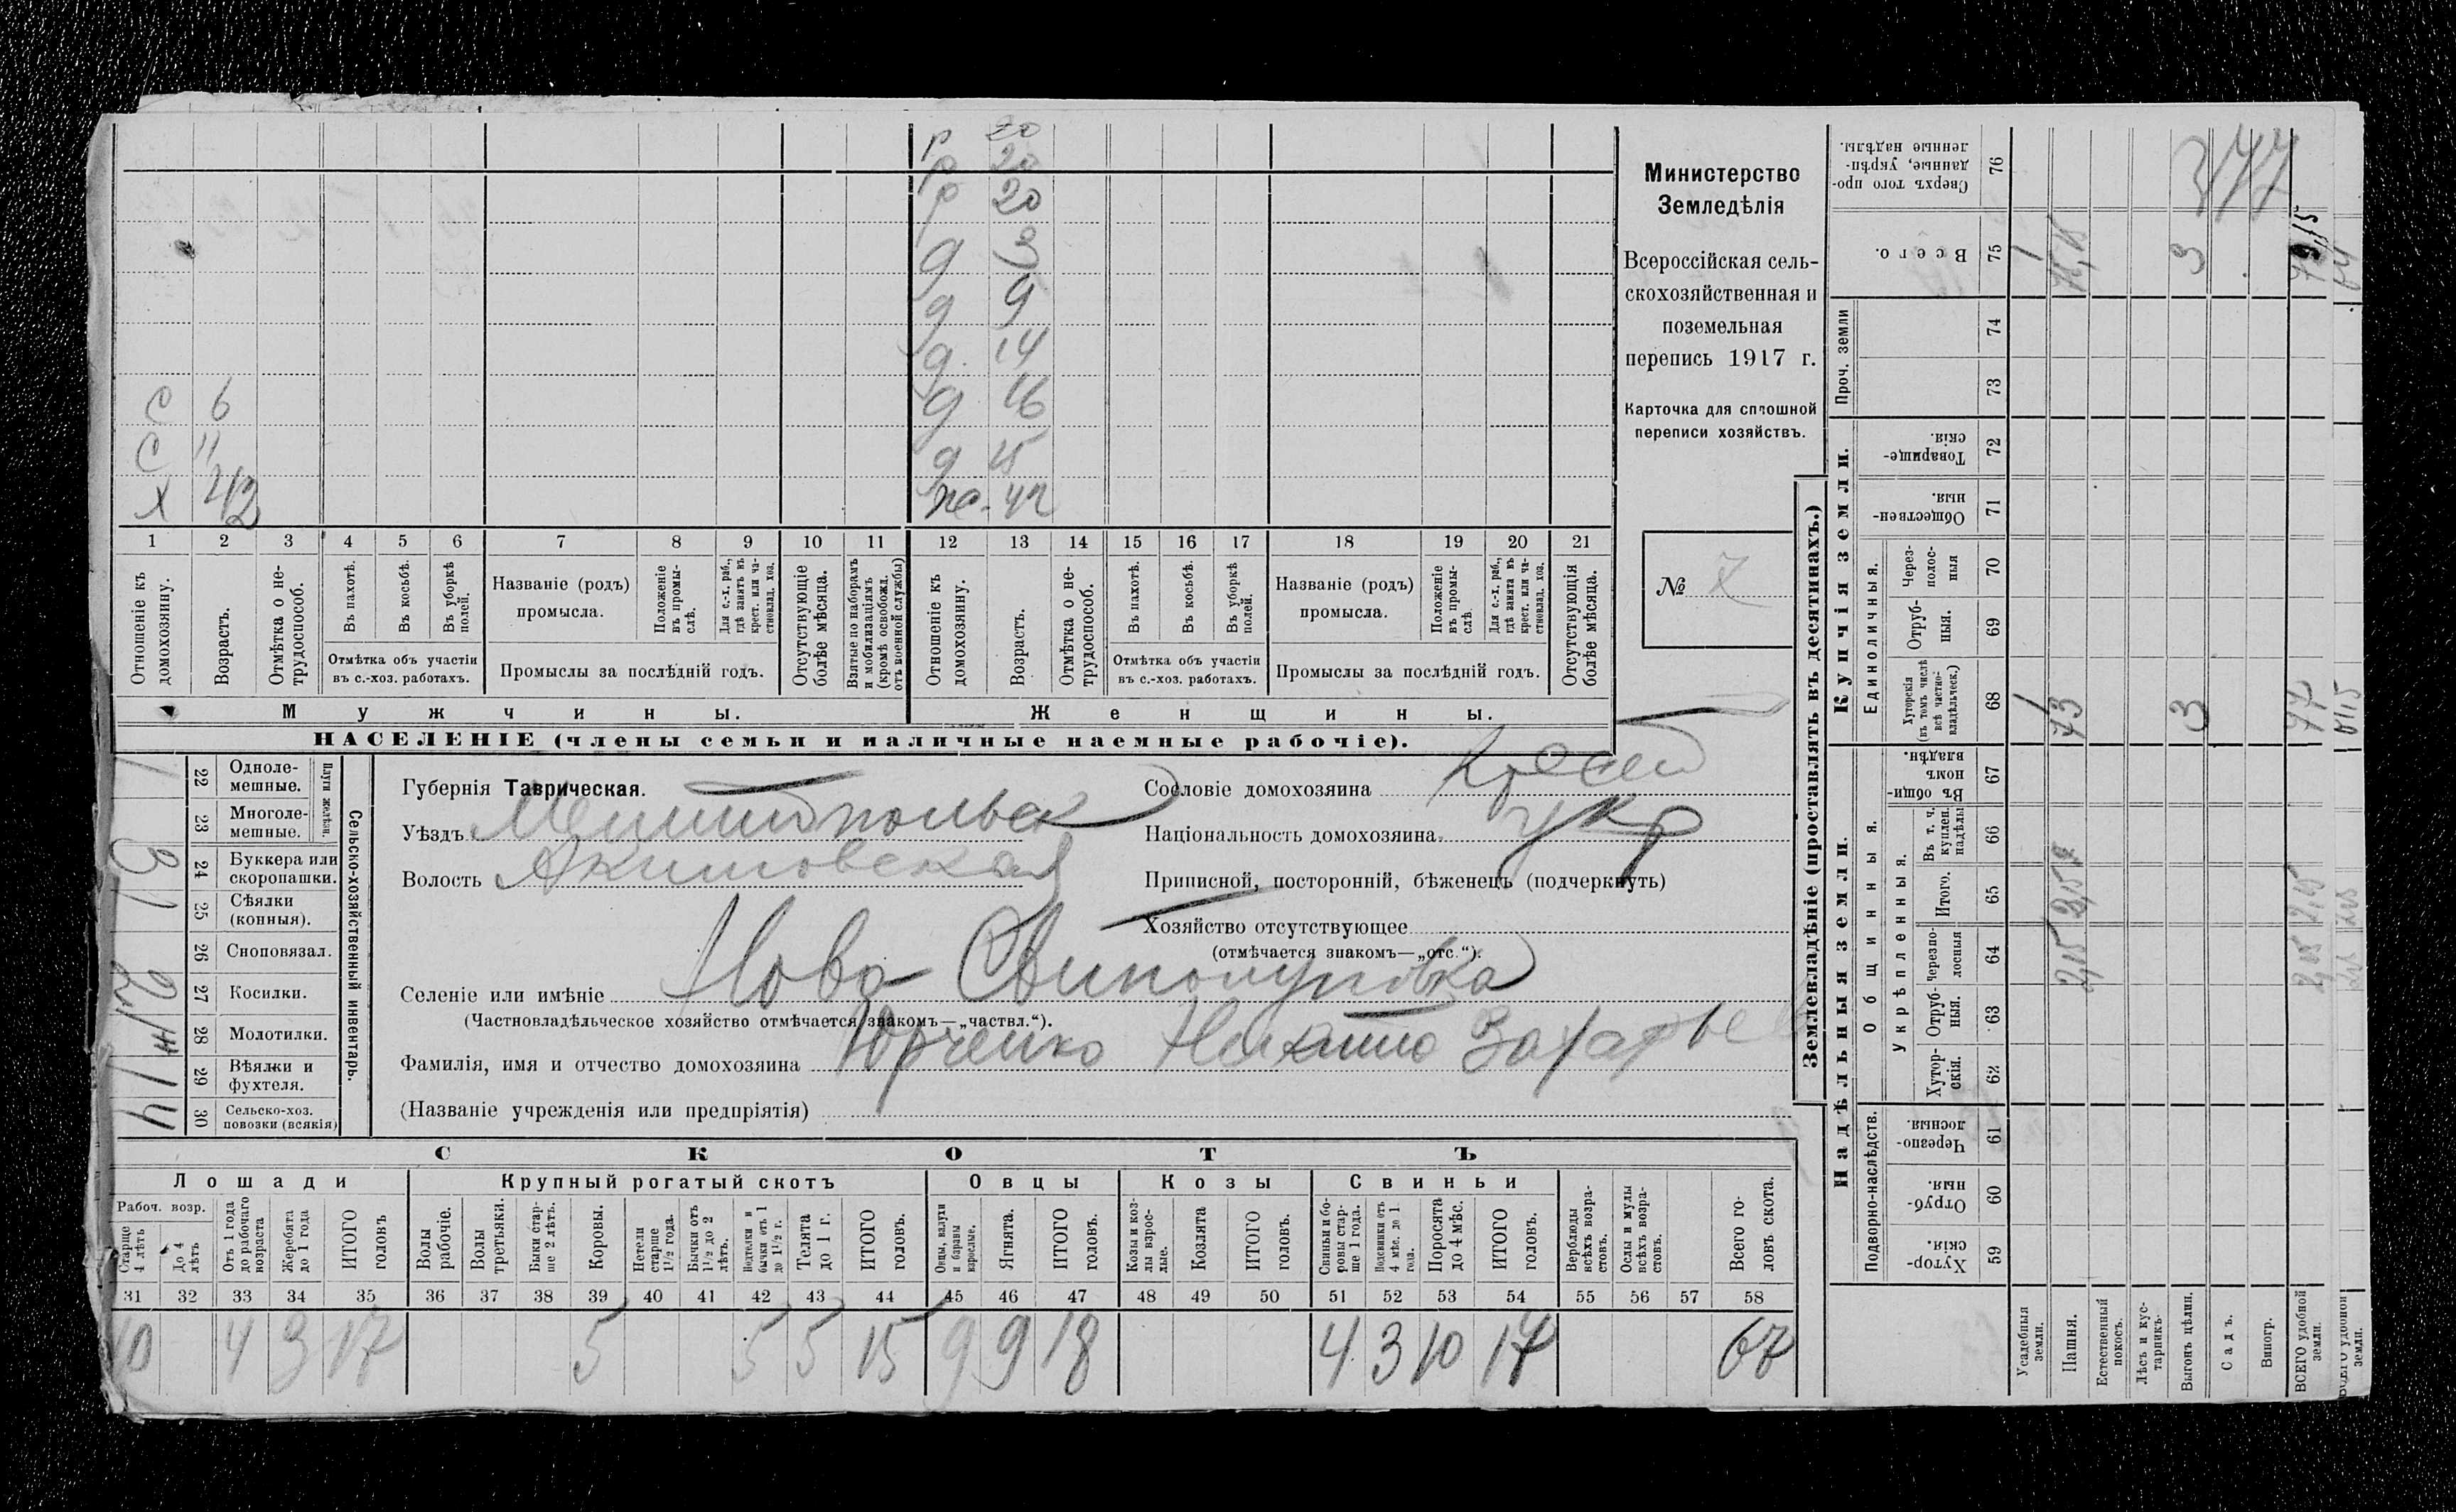 р 20
р 20
р 20
д 3
д 9
д. 14
с 6 д 16
с 11 д 15
х 42 же. 42
1 2 3 4 5 6 7 8 9 10 11 12 13 14 15 16 17 18 19 20 21
Отношеніе къ домохозяину.
Возрастъ.
Отмѣтка о не-трудоспособ.
Въ пахотѣ.
Въ косьбѣ.
Въ уборкѣ полей.
Отмѣтка объ участіи въ с.-хоз. работахъ.
Названіе (родъ) промысла.
Положеніе въ промы-слѣ.
Для с.-х. раб., гдѣ занятъ въ крест. или ча-стновлад. хоз.
Промыслы за послѣдній годъ.
Отсутствующіе болѣе мѣсяца.
Взятые по наборамъ и мобилизаціямъ (кромѣ освобожд. отъ военной службы)
Отношеніе къ домохозяину.
Возрастъ.
Отмѣтка о не-трудоспособ.
Въ пахотѣ.
Въ косьбѣ.
Въ уборкѣ полей.
Отмѣтка объ участіи въ с.-хоз. работахъ.
Названіе (родъ) промысла.
Положеніе въ промы-слѣ
Для с.-х. раб., гдѣ занятъ въ крест. или ча-стновлад. хоз.
Промыслы за послѣдній годъ.
Отсутствующія болѣе мѣсяца.
Мужчины.
Женщины.
НАСЕЛЕНІЕ (члены семьи и наличные наемные рабочіе).
Министерство
Земледѣлія
Всероссійская сель-
скохозяйственная и
поземельная
перепись 1917 г.
Карточка для сплошной
переписи хозяйствъ.
№ 7
Сельско-хозяйственный инвентарь.
Плуги желѣзн.
22 Однолемешные. 1
23 Многоле-мешные.
24 Буккера или скоропашки. 3
25 Сѣялки (конныя). 1
26 Сноповязал.
27 Косилки. 2
28 Молотилки.
29 Вѣялки и фухтеля. 1
30 Сельско-хоз. повозки (всякія) 4
Губернія Таврическая.
Уѣздъ Мелитопольск
Волость Акимовская
Сословіе домохозяина Крест
Національность домохозяина. укр
Приписной, посторонній, бѣженецъ (подчеркнуть)
Хозяйство отсутствующее
(отмѣчается знакомъ—„отс.“).
Селеніе или имѣніе Ново
(Частновладѣльческое хозяйство отмѣчается знакомъ—„частвл.“).
Фамилія, имя и отчество домохозяина Юрченко Никита Захарье
(Названіе учрежденія или предпріятія)
СКОТЪ
Лошади
Крупный рогатый скотъ
Овцы
Козы
Свиньи
Рабоч. возр.
Старше 4 лѣтъ
До 4 лѣтъ
Отъ 1 года до рабочаго возраста
Жеребята до 1 года
ИТОГО головъ
Волы рабочіе.
Волы третьяки.
Быки стар-ше 2 лѣтъ.
Коровы.
Нетели старше 1½ года.
Бычки отъ 1½ до 2 лѣтъ.
Подтелки и бычки отъ 1 до 1½ г.
Телята до 1 г.
ИТОГО головъ.
Овцы, валухи и бараны взрослые.
Ягнята.
ИТОГО головъ.
Козы и коз-лы взрос-лые.
Козлята
ИТОГО головъ.
Свиньи и бо-ровы стар-ше 1 года.
Подсвинки отъ 4 мѣс. до 1 года.
Поросята до 4 мѣс.
ИТОГО головъ.
Верблюды всѣхъ возра-стовъ.
Ослы и мулы всѣхъ возра-стовъ.
Всего го-ловъ скота.
31 32 33 34 35 36 37 38 39 40 41 42 43 44 45 46 47 48 49 50 51 52 53 54 55 56 57 58
10 4 3 17 5 5 5 15 9 9 18 4 3 10 17 67
Землевладѣніе (проставлять въ десятинахъ.)
Купчія земли.
Надѣльныя земли.
Проч. земли
Единоличныя.
Общинныя.
Укрѣпленныя.
Подворно-наслѣдств.
Сверхъ того про-данные, укрѣп-ленные надѣлы. 76
Всего. 75
74
73
Товарище-скія. 72
Обществен-ныя. 71
Через-полос-ныя 70
Отруб-ныя. 69
Хуторскія (въ томъ числѣ всѣ частно-владѣльческ.) 68
Въ общин-номъ владѣн. 67
Въ т. ч. куплен. надѣлы 66
Итого. 65
Черезпо-лосныя 64
Отруб-ныя. 63
Хутор-скія. 62
Черезпо-лосныя. 61
Отруб-ныя. 60
Хутор-скія. 59
Усадебныя земли. 1 1
Пашня. 2,15 73
Естественный покосъ.
Лѣсъ и кус-тарникъ.
Выгонъ цѣлин. 3 3
Садъ.
Виногр.
ВСЕГО удобной земли. 2,15 2,15 77 79,15
377